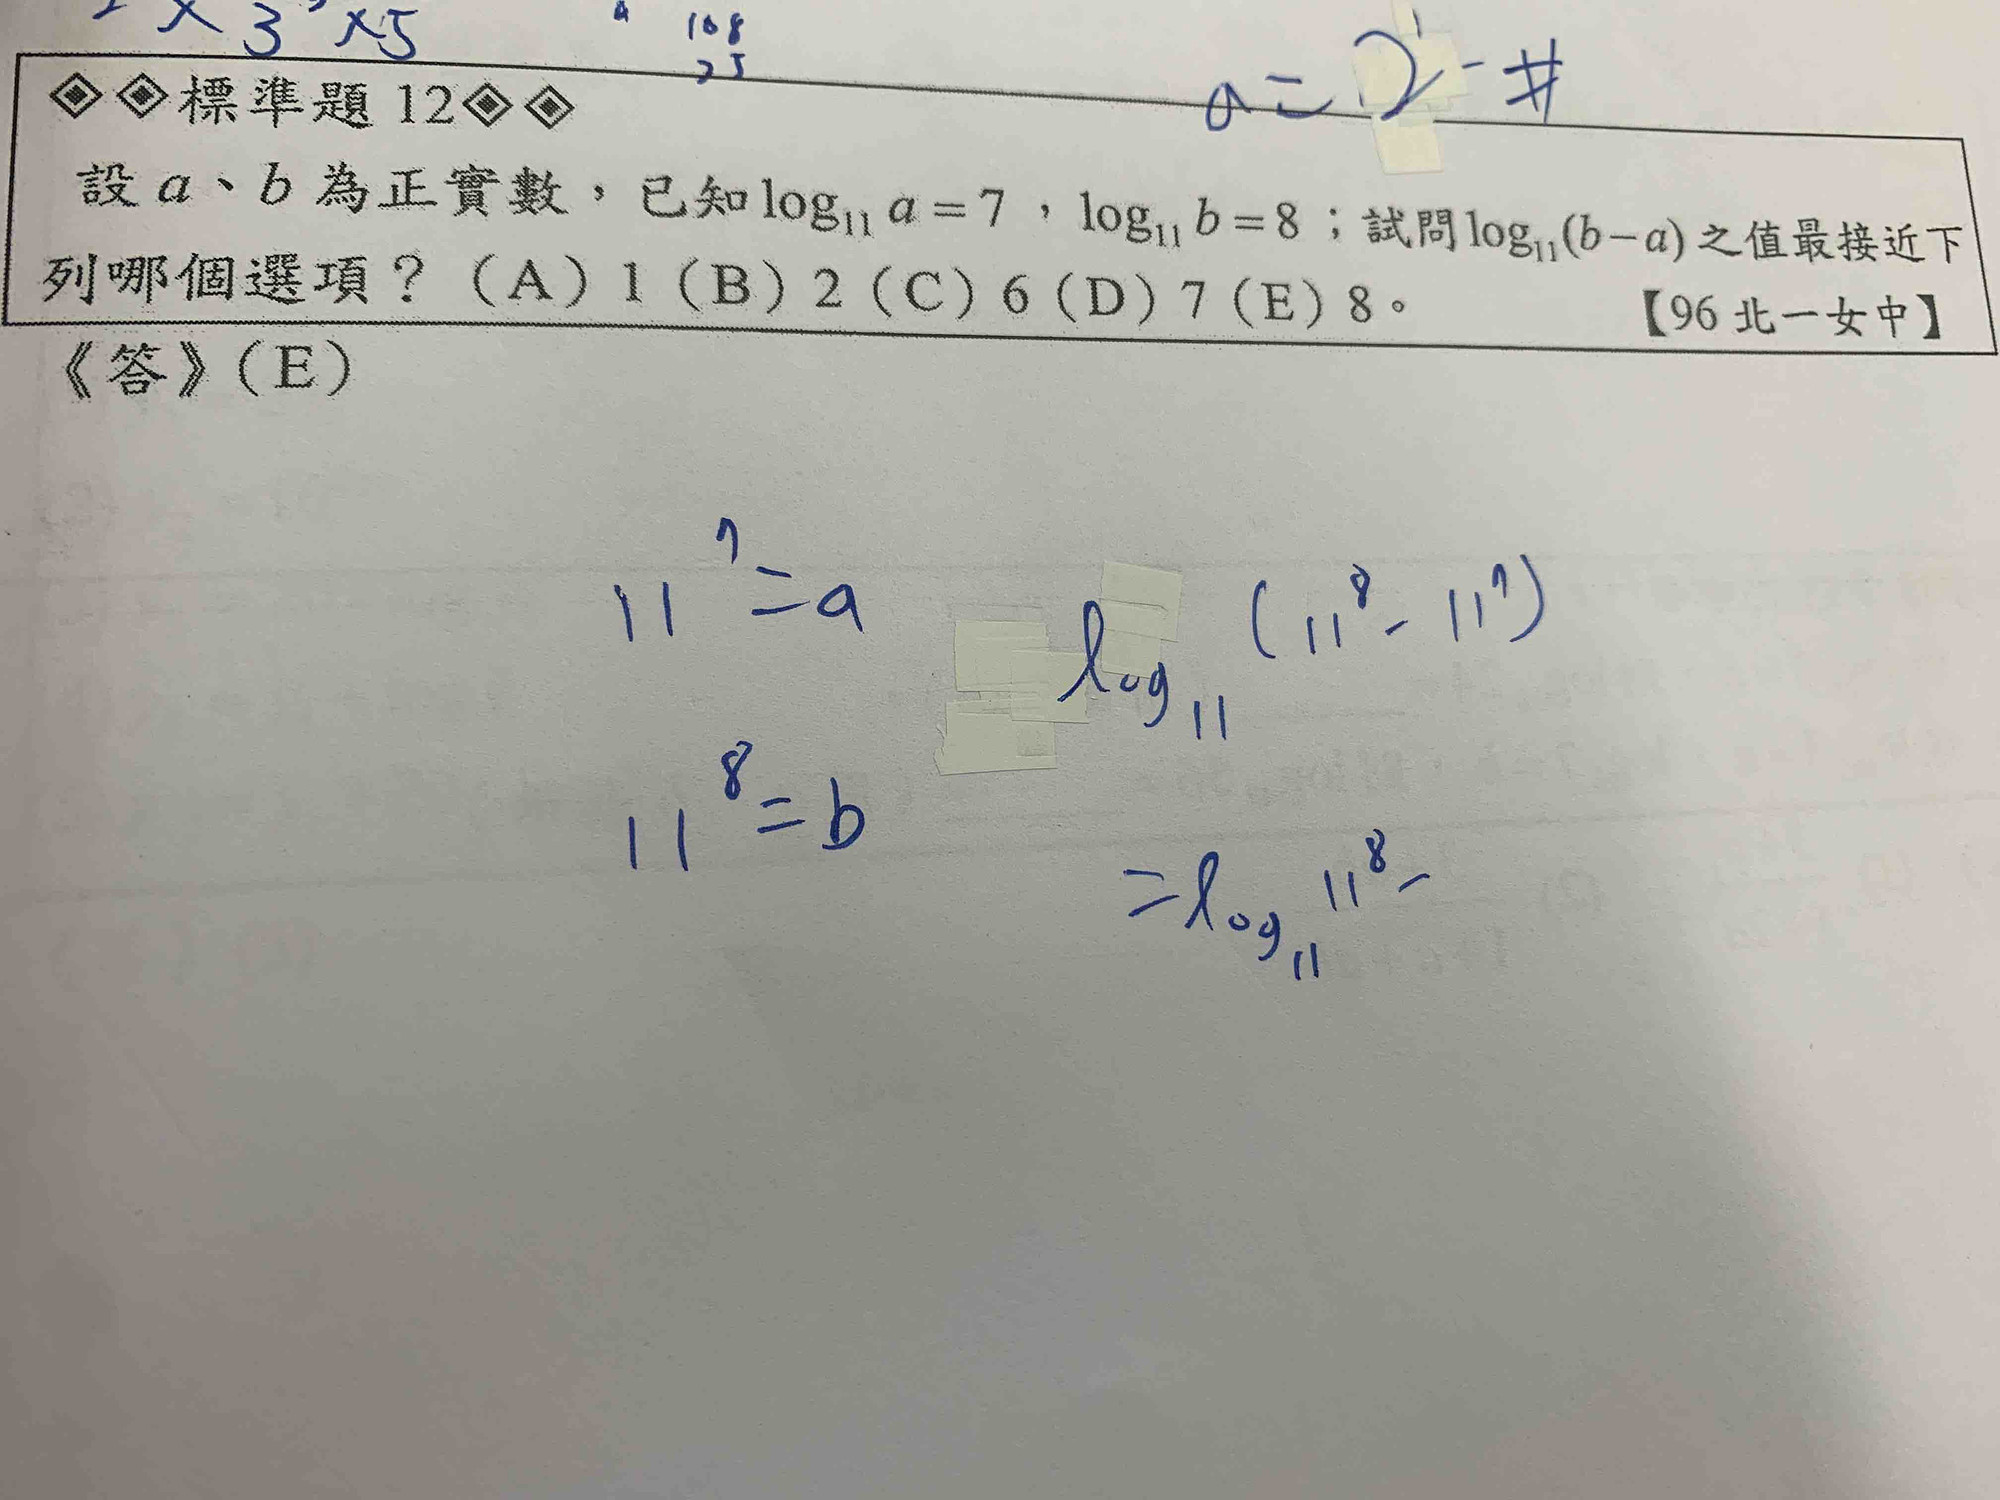 3 × 5
108
25
a = 2 #
◈◈標準題 12◈◈
設 a、b 為正實數，已知 log₁₁ a = 7，log₁₁ b = 8；試問 log₁₁(b−a) 之值最接近下
列哪個選項？（A）1（B）2（C）6（D）7（E）8。【96 北一女中】
《答》（E）
11⁷ = a
log₁₁ (11⁸ - 11⁷)
11⁸ = b
= log₁₁ 11⁸ -